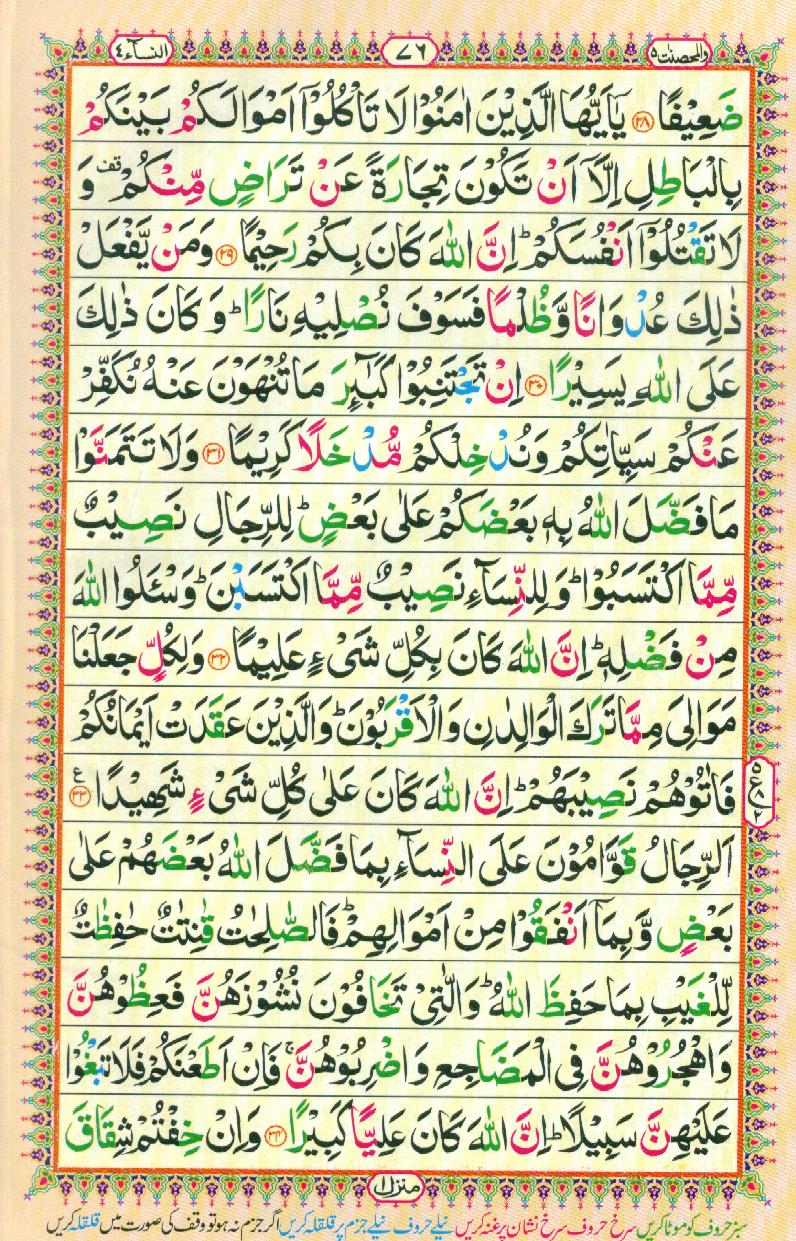 والمحصنٰت ۵ ۷۶ النسآء ۴
ضَعِیْفًا ﴿۲۸﴾ یٰۤاَیُّهَا الَّذِیْنَ اٰمَنُوْا لَا تَاْكُلُوْۤا اَمْوَالَكُمْ بَیْنَكُمْ
بِالْبَاطِلِ اِلَّاۤ اَنْ تَكُوْنَ تِجَارَةً عَنْ تَرَاضٍ مِّنْكُمْ ۫ وَ
لَا تَقْتُلُوْۤا اَنْفُسَكُمْ ؕ اِنَّ اللّٰهَ كَانَ بِكُمْ رَحِیْمًا ﴿۲۹﴾ وَمَنْ یَّفْعَلْ
ذٰلِكَ عُدْوَانًا وَّظُلْمًا فَسَوْفَ نُصْلِیْهِ نَارًا ؕ وَ كَانَ ذٰلِكَ
عَلَی اللّٰهِ یَسِیْرًا ﴿۳۰﴾ اِنْ تَجْتَنِبُوْا كَبَآىِٕرَ مَا تُنْهَوْنَ عَنْهُ نُكَفِّرْ
عَنْكُمْ سَیِّاٰتِكُمْ وَنُدْخِلْكُمْ مُّدْخَلًا كَرِیْمًا ﴿۳۱﴾ وَلَا تَتَمَنَّوْا
مَا فَضَّلَ اللّٰهُ بِهٖ بَعْضَكُمْ عَلٰی بَعْضٍ ؕ لِلرِّجَالِ نَصِیْبٌ
مِّمَّا اكْتَسَبُوْا ؕ وَ لِلنِّسَآءِ نَصِیْبٌ مِّمَّا اكْتَسَبْنَ ؕ وَسْـَٔلُوا اللّٰهَ
مِنْ فَضْلِهٖ ؕ اِنَّ اللّٰهَ كَانَ بِكُلِّ شَیْءٍ عَلِیْمًا ﴿۳۲﴾ وَلِكُلٍّ جَعَلْنَا
مَوَالِیَ مِمَّا تَرَكَ الْوَالِدٰنِ وَالْاَقْرَبُوْنَ ؕ وَالَّذِیْنَ عَقَدَتْ اَیْمَانُكُمْ
فَاٰتُوْهُمْ نَصِیْبَهُمْ ؕ اِنَّ اللّٰهَ كَانَ عَلٰی كُلِّ شَیْءٍ شَهِیْدًا ﴿۳۳﴾ ع
اَلرِّجَالُ قَوّٰمُوْنَ عَلَی النِّسَآءِ بِمَا فَضَّلَ اللّٰهُ بَعْضَهُمْ عَلٰی
بَعْضٍ وَّبِمَاۤ اَنْفَقُوْا مِنْ اَمْوَالِهِمْ ؕ فَالصّٰلِحٰتُ قٰنِتٰتٌ حٰفِظٰتٌ
لِّلْغَیْبِ بِمَا حَفِظَ اللّٰهُ ؕ وَالّٰتِیْ تَخَافُوْنَ نُشُوْزَهُنَّ فَعِظُوْهُنَّ
وَاهْجُرُوْهُنَّ فِی الْمَضَاجِعِ وَاضْرِبُوْهُنَّ ۚ فَاِنْ اَطَعْنَكُمْ فَلَا تَبْغُوْا
عَلَیْهِنَّ سَبِیْلًا ؕ اِنَّ اللّٰهَ كَانَ عَلِیًّا كَبِیْرًا ﴿۳۴﴾ وَاِنْ خِفْتُمْ شِقَاقَ
منزل ۱
سبز حروف کو موٹا کریں سرخ حروف سرخ نشان پر غنہ کریں نیلے حروف نیلے جزم پر قلقلہ کریں اگر جزم نہ ہو تو وقف کی صورت میں قلقلہ کریں